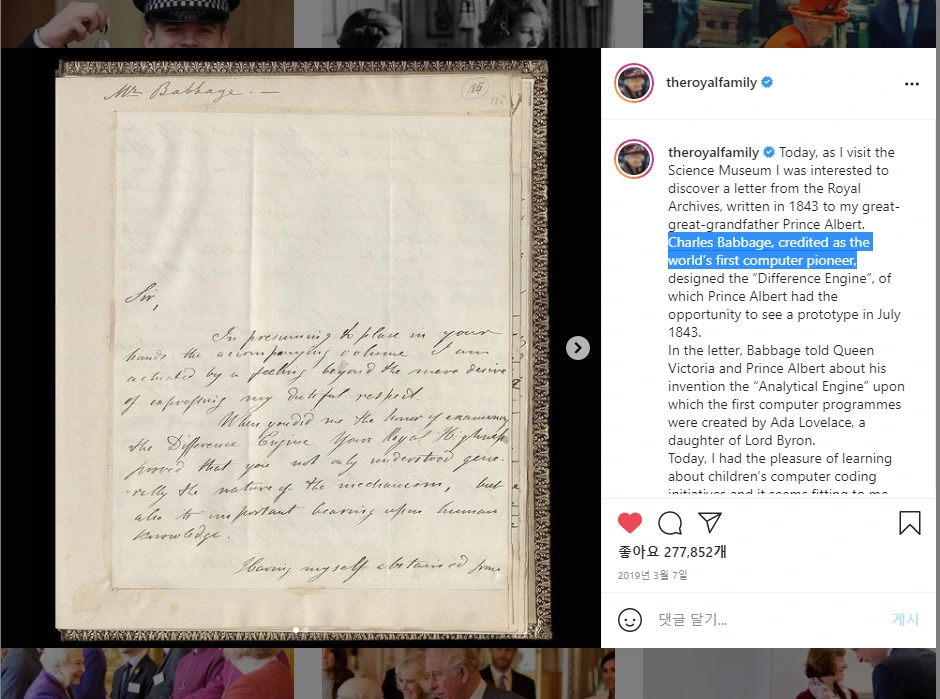 Mr Babbage. —
184
185
Sir,
In presuming to place in your
hands the accompanying volume I am
actuated by a feeling beyond the mere desire
of expressing my dutiful respect.
When you did me the honor of examining
the Difference Engine Your Royal Highness
proved that you not only understood gene-
-rally the nature of the mechanism, but
also its important bearing upon human
knowledge.
Having myself abstained from
theroyalfamily
theroyalfamily Today, as I visit the
Science Museum I was interested to
discover a letter from the Royal
Archives, written in 1843 to my great-
great-grandfather Prince Albert.
Charles Babbage, credited as the
world’s first computer pioneer,
designed the “Difference Engine”, of
which Prince Albert had the
opportunity to see a prototype in July
1843.
In the letter, Babbage told Queen
Victoria and Prince Albert about his
invention the “Analytical Engine” upon
which the first computer programmes
were created by Ada Lovelace, a
daughter of Lord Byron.
Today, I had the pleasure of learning
about children’s computer coding
initiatives and it seems fitting to me
좋아요 277,852개
2019년 3월 7일
댓글 달기...
게시